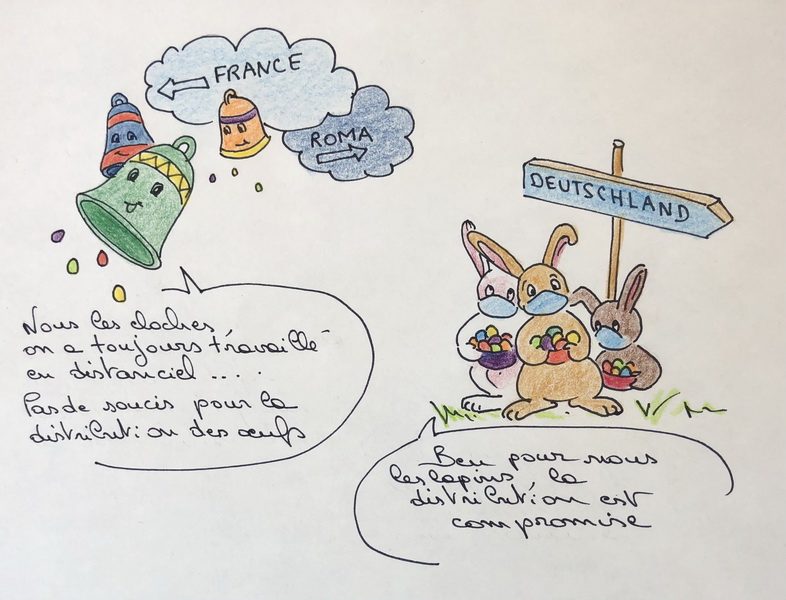 FRANCE
ROMA
DEUTSCHLAND
Nous les cloches,
on a toujours travaillé
en distanciel ....
Pas de soucis pour la
distribution des œufs
Ben pour nous
les lapins, la
distribution est
compromise